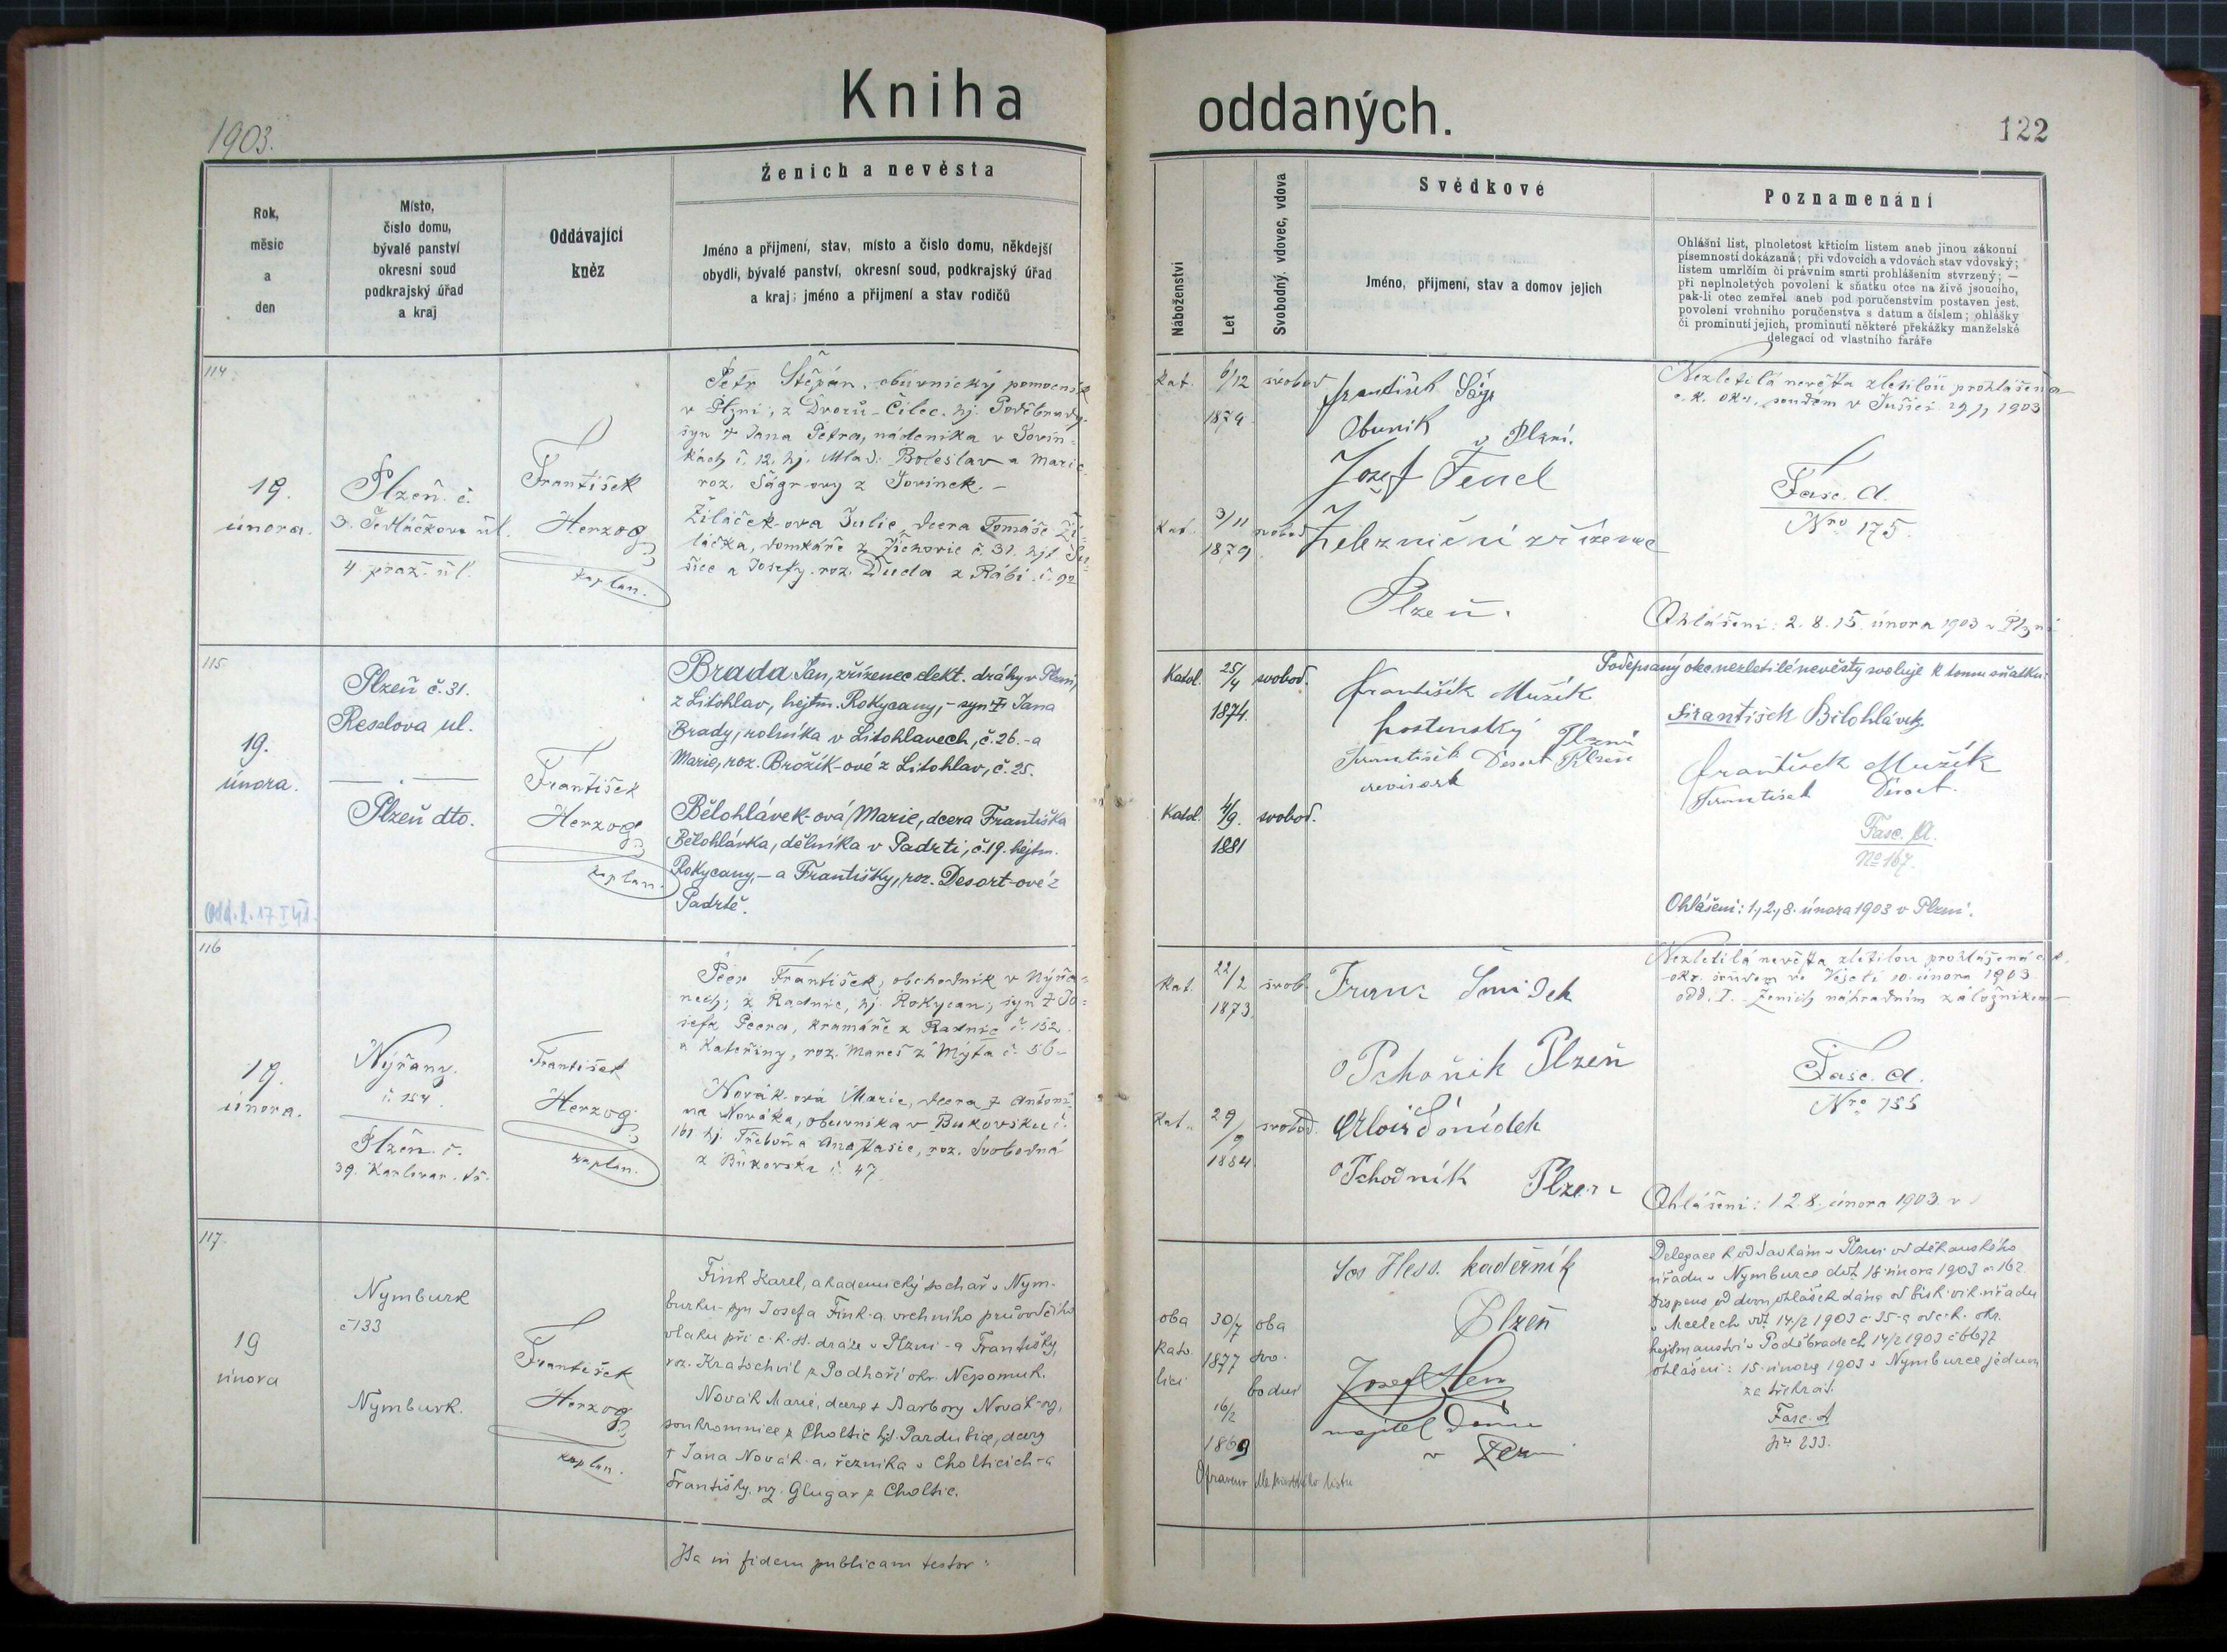 Kniha
oddaných.
1903.
122
Rok,
měsíc
a
den
Místo,
číslo domu,
bývalé panství
okresní soud
podkrajský úřad
a kraj
Oddávající
kněz
Ženich a nevěsta
Jméno a přijmení, stav, místo a číslo domu, někdejší
obydlí, bývalé panství, okresní soud, podkrajský úřad
a kraj; jméno a přijmení a stav rodičů
Náboženství
Let
Svobodný, vdovec, vdova
Svědkové
Jméno, přijmení, stav a domov jejich
Poznamenání
Ohlášní list, plnoletost křticím listem aneb jinou zákonní
písemností dokázaná; při vdovcích a vdovách stav vdovský;
listem umrlčím či právním smrti prohlášením stvrzený; —
při neplnoletých povolení k sňatku otce na živě jsoucího,
pak-li otec zemřel aneb pod poručenstvím postaven jest,
povolení vrchního poručenstva s datum a číslem; ohlášky
či prominutí jejich, prominutí některé překážky manželské
delegací od vlastního faráře
114
19.
února.
Plzeň č.
3. Sedláčkova ul.
4. praž. ul.
František
Herzog
kaplan.
Petr Štěpán, obuvnický pomocník
v Plzni, z Dvorů-Čilec. hj. Poděbrady.
syn † Jana Petra, nádeníka v
kách č. 12, hj. Mlad. Boleslav a Marie
roz.
Žiláček-ova Julie, dcera Tomáše Ži-
láčka, domkáře z Žichovic č. 31. hjt Su-
šice a Josefy roz. Duda z Rábí č. 92
Kat.
6/12
1874
svobod
František
Obuvník v Plzni.
Josef Fencl
Železniční zřízenec
Plzeň.
Kat.
3/11
1879
svobod
Nezletilá nevěsta zletilou prohlášena
c. k. okr. soudem v Sušici 29/1 1903
Fasc. A.
Nro 175.
Ohlášení: 2. 8. 15. února 1903 v Plzni
115
19.
února.
Plzeň č. 31.
Resslova ul.
Plzeň dto.
František
Herzog
kaplan.
Brada Jan, zřízenec elekt. dráhy v Plzni,
z Litohlav, hejtm. Rokycany, - syn † Jana
Brady, rolníka v Litohlavech, č. 26. - a
Marie, roz. Brožík-ové z Litohlav, č. 25.
Bělohlávek-ová Marie, dcera Františka
Bělohlávka, dělníka v Padrti, č. 19. hejtm.
Rokycany, - a Františky, roz. Desort-ové z
Padrtě.
Katol.
25/4
1874.
svobod.
František Mužík
hostinský Plzni
František Desort Plzeň
Katol.
4/9.
1881
svobod.
Podepsaný otec nezletilé nevěsty svoluje k tomu sňatku:
František Bělohlávek
František Mužík
František Desort.
Fasc. A.
No 167.
Ohlášení: 1., 2., 8. února 1903 v Plzni.
116
19.
února.
Nýřany.
č. 154
Plzeň č.
39. Karlovar. tř.
František
Herzog
kaplan.
Peer František, obchodník v Nýřa-
nech; z Radnic, hj. Rokycan, syn † Jo-
sefa Peera, kramáře z Radnic č. 152
a Kateřiny, roz. Mareš z Mýta č. 56
Novák-ova Marie, dcera † Antoní-
na Nováka, obuvníka v Bukovsku č.
161 hj. Třeboň a Anastasie, roz. Svobodná
z Bukovska č. 47
Kat.
22/2
1873.
svob.
Franz Šmídek
Obchoník Plzeň
Kat.
29/9
1884
svobod.
Alois Šmídek
Obchodník Plzen
Nezletilá nevěsta zletilou prohlášená c. k.
okr. soudem ve Veselí 10. února 1903
odd. I. - Ženich náhradním záložníkem
Fasc. A.
Nro 155
Ohlášení: 1. 2. 8. února 1903 v
117
19
února
Nymburk
č 133
Nymburk.
František
Herzog
kaplan.
Fink Karel, akademický sochař v Nym-
burku - syn Josefa Fink-a vrchního průvodčího
vlaku při c. k. st. dráze v Plzni - a Františky,
roz. Kratochvil z Podhoří okr. Nepomuk.
Novák Marie, dcera † Barbory Novák-ny,
soukromnice z Choltic hjt. Pardubice, dcery
† Jana Novák-a, řezníka v Cholticích - a
Františky, roz. Glugar z Choltic.
oba
kato
líci
30/7
1877
16/2
1869
oba
svo-
bodni
Jos Hess. kadeřník
Plzeň
majitel domu
Opraveno dle křestního listu
Delegace k oddavkám v Plzni od děkanského
úřadu v Nymburce dat. 18 února 1903 č 162
Dispens od dvou ohlášek dána od bisk. vik. úřadu
v Mcelech dat. 14/2 1903 č 35 - a od c. k. okr.
hejtmanství v Poděbradech 14/2 1903 č 6677
ohlášení: 15. února 1903 v Nymburce jednou
za třikrát.
Fasc. A
No 233.
Ita in fidem publicam testor: